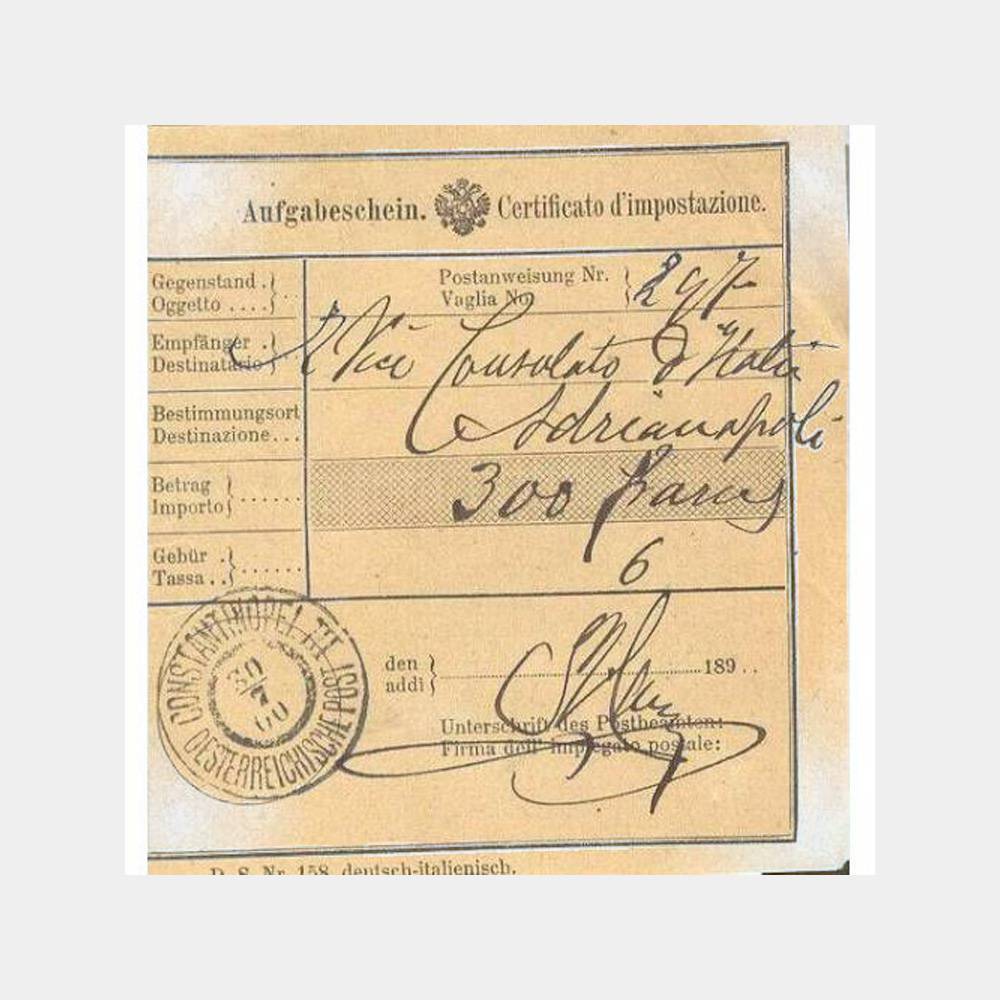 Aufgabeschein. Certificato d'impostazione.
Gegenstand .
Oggetto ....
Postanweisung Nr.
Vaglia No.
297
Empfänger .
Destinatario
Vice Consolato d'Italia
Bestimmungsort
Destinazione...
Adrianapoli
Betrag ......
Importo
300 francs
Gebür .
Tassa .. ......
6
CONSTANTINOPEL III
OESTERREICHISCHE POST
30
00
den
addi
189 ..
Unterschrift des Postbeamten:
Firma dell' impiegato postale:
D. S. Nr. 158. deutsch-italienisch.